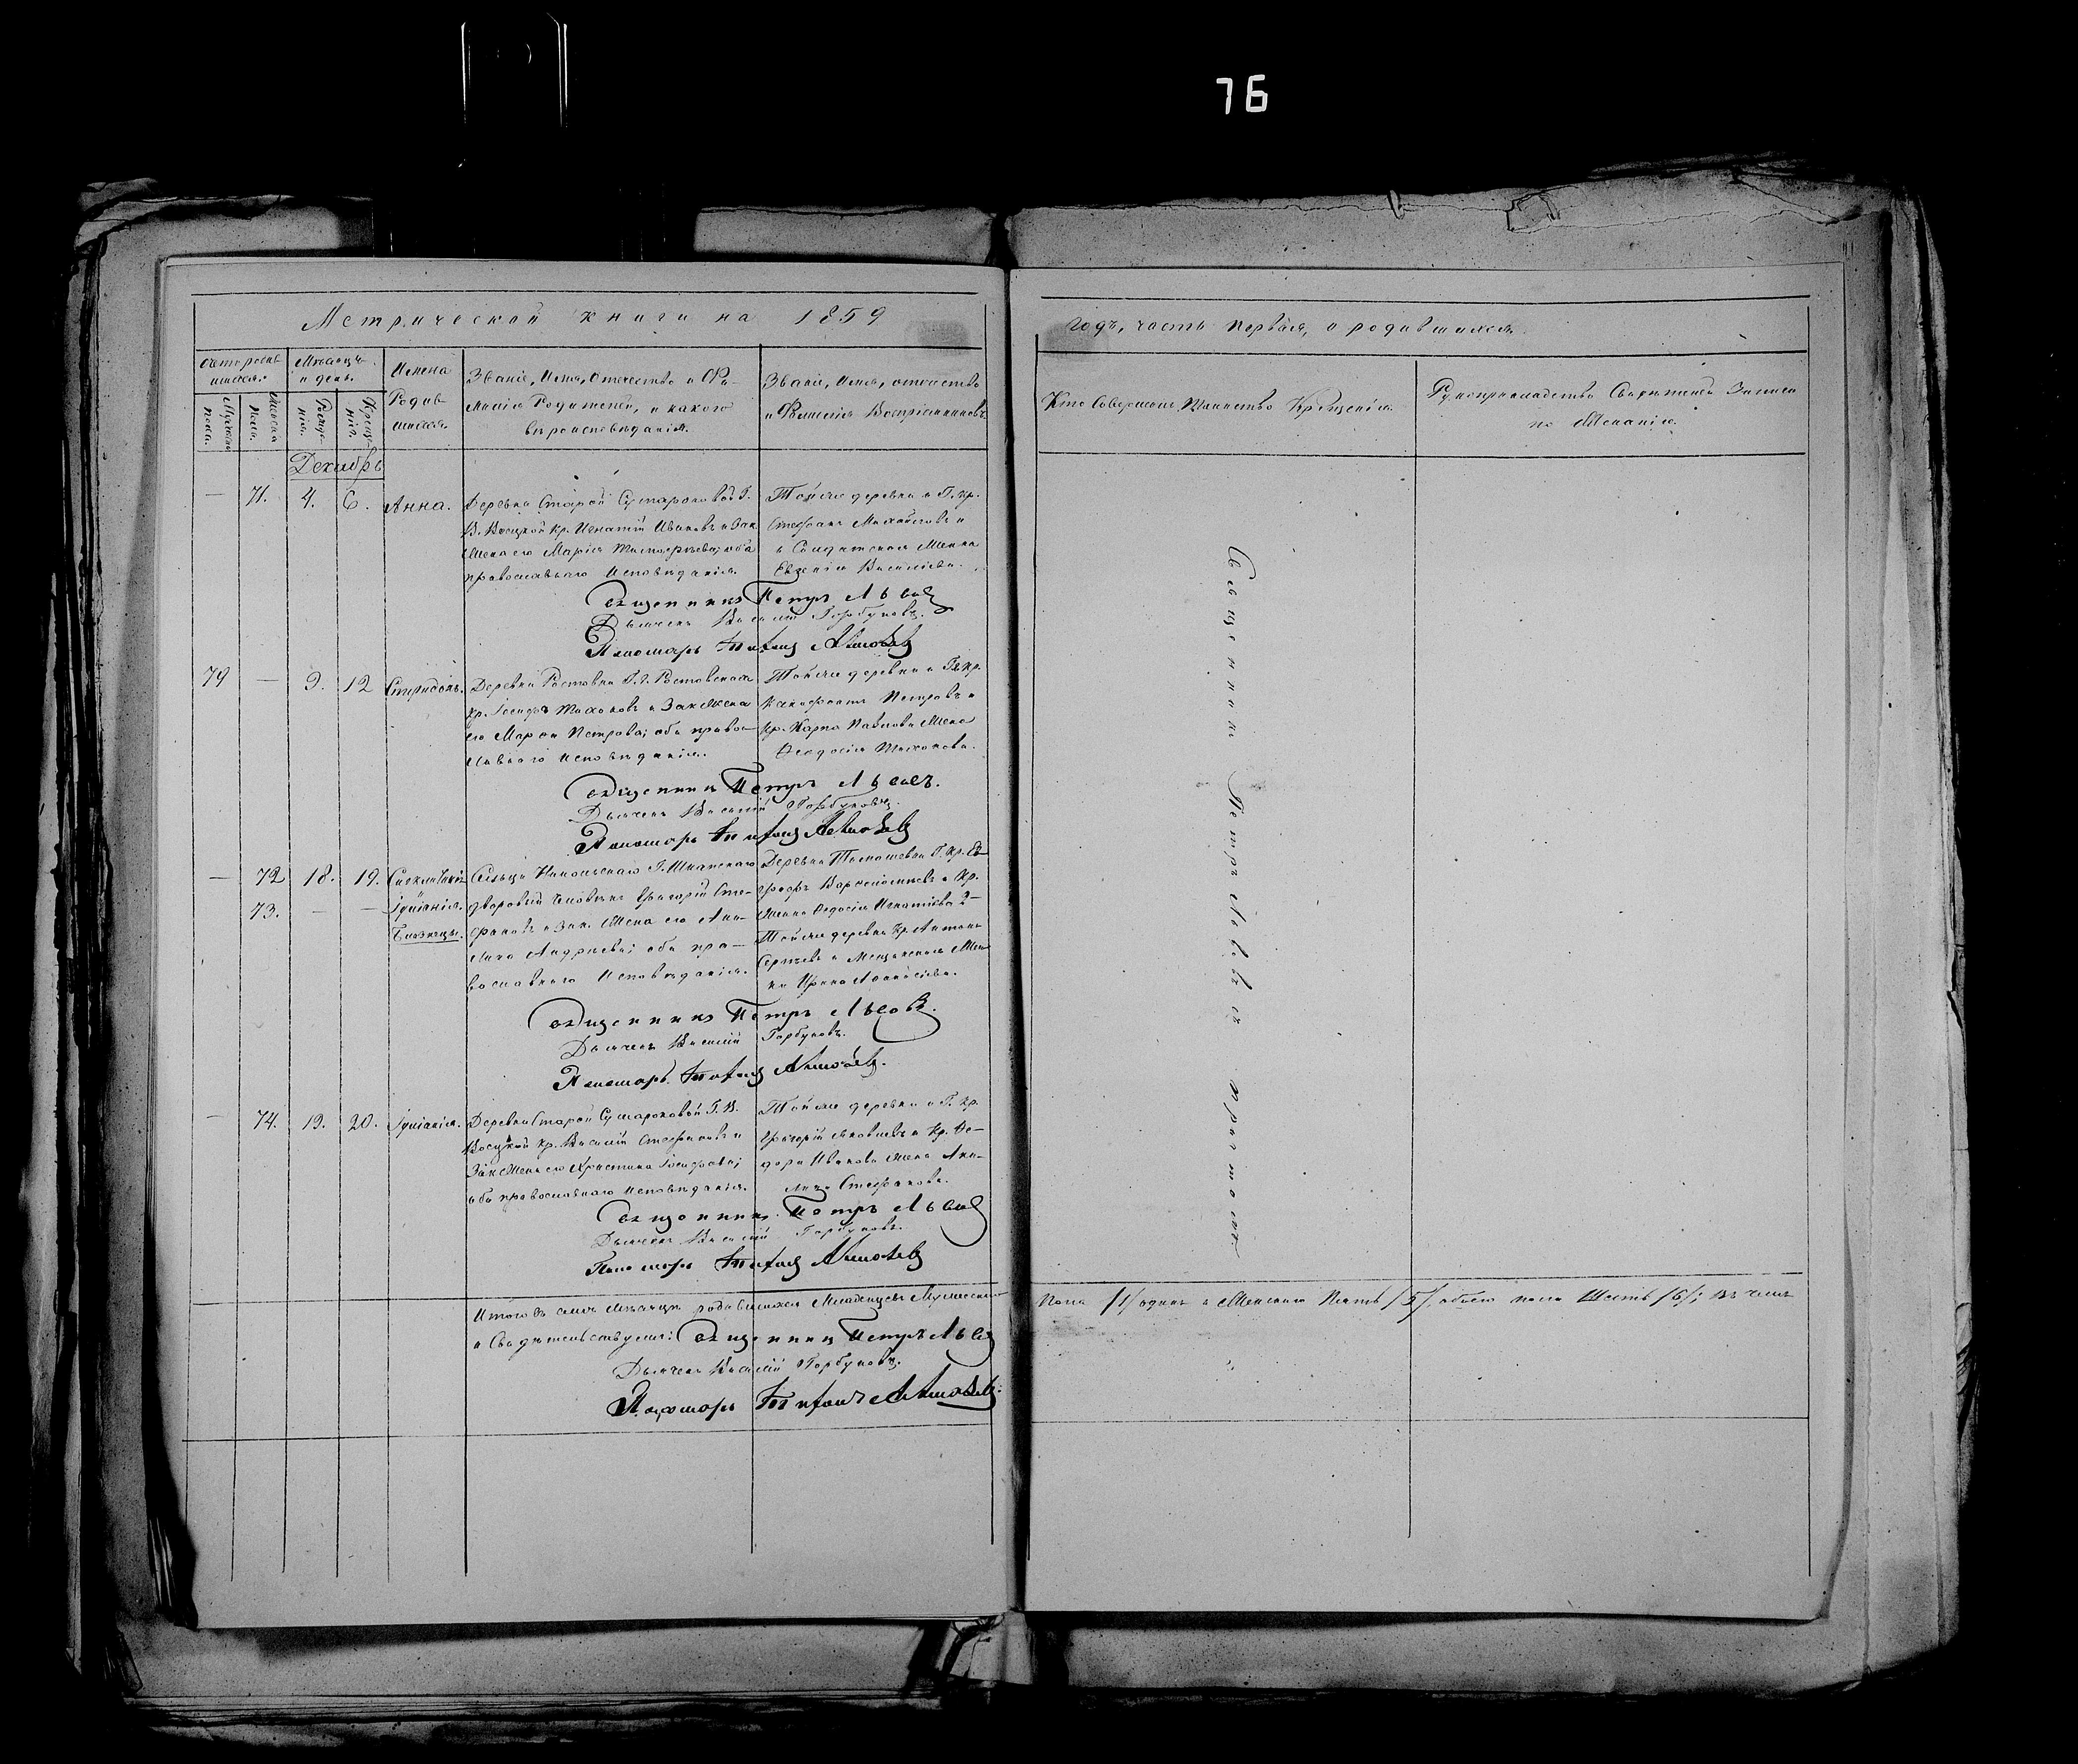 76
Метрической книги на 1859
годъ, часть первая, о родившихся.
Счетъ родившихся.
Мужеска пола.
Женска пола.
Мѣсяцъ и день.
Рожденія.
Крещенія.
Имена
Родив
шихся.
Званіе, Имя, Отчество и Фа-
милія Родителей, и какого
вѣроисповѣданія.
Званіе, Имя, отчество
и Фамилія Воспріемниковъ
Кто Совершалъ Таинство Крещенія.
Рукоприкладство Свидѣтелей Записи
по Желанію.
Декабрь
— 71. 4. 6. Анна.
Деревни Старой Сумароковой Г.
В. Кр. Игнатій Ивановъ и Зак
Жена его Марія Тимофѣева; оба
православнаго Исповѣданія.
Той же деревни и Г. кр.
Стефанъ Михайловъ и
Солдатская Женка
Евгенія Василіева.
Священникъ Петръ
Дьячекъ Василій Горбуновъ.
Пономарь Тихонъ
79 — 9. 12 Спиридонъ.
Деревни Ростовки Г. Ростовская
кр. Іосифъ Тихоновъ и Зак Жена
его Марфа Петрова; оба право-
славнаго исповѣданія.
Той же деревни и Гжи Кр.
Петровъ и
Кр. Карпа Павлова Жена
Феодосія Тихонова.
Священникъ Петръ
Дьячекъ Василій Горбуновъ.
Пономарь Тихонъ
— 72 18. 19.
73. — — Іуліанія.
Близнецы.
Сельца Никольскаго Г.
дворовый человѣкъ Григорій Сте-
фановъ и Зак. Жена его Аки-
лина Андреева; оба пра-
вославнаго Исповѣданія.
Деревни Г. Кр.
и Кр.
Женка Федосія Игнатіева 2-
Той же деревни Кр. Антонъ
Сергѣевъ и Жен
ка Ирина
Священникъ Петръ
Дьячекъ Василій Горбуновъ.
Пономарь Тихонъ
— 74. 19. 20. Іуліанія.
Деревни Старой Сумароковой Г. В.
Кр. Василій Стефановъ и
Зак Жена его Христина Іосифова;
оба православнаго исповѣданія.
Той же деревни и Г. Кр.
Григорій Яковлевъ и Кр. Фе-
дора Иванова Жена Аки-
лина Стефанова.
Священникъ Петръ
Дьячекъ Василій Горбуновъ.
Пономарь Тихонъ
Священникъ Петръ причтомъ
Итого въ семъ Мѣсяцѣ родившихся Младенцевъ Мужеска
пола /1/ одинъ и Женскаго Пять /5/, обоего пола Шесть /6/; Въ чемъ
и Свидѣтельствуемъ: Священникъ Петръ
Дьячекъ Василій Горбуновъ.
Пономарь Тихонъ